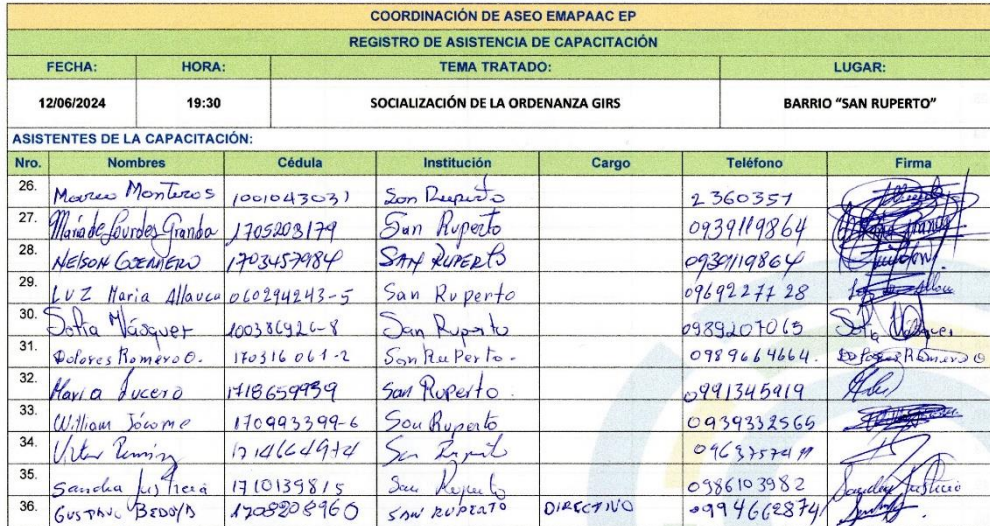 COORDINACIÓN DE ASEO EMAPAAC EP
REGISTRO DE ASISTENCIA DE CAPACITACIÓN
FECHA: HORA: TEMA TRATADO: LUGAR:
12/06/2024 19:30 SOCIALIZACIÓN DE LA ORDENANZA GIRS BARRIO "SAN RUPERTO"
ASISTENTES DE LA CAPACITACIÓN:
Nro. Nombres Cédula Institución Cargo Teléfono Firma
26. Monteros San Ruperto 2360357
27. María de Lourdes Granda 1705203179 San Ruperto 0939119864
28. NELSON GUERRERO 1703457984 SAN RUPERTO 0939119864
29. LUZ Maria Allauca 060294243-5 San Ruperto 0969227728
30. Sofía Vásquez 100386926-8 San Ruperto 0989207065 Sofía Vásquez
31. Dolores Romero O. 170316061-2 San RuPerto. 0989664664. Dolores Romero O
32. Maria Lucero 1718659939 San Ruperto 0991345919
33. William Jócome 170993399-6 San Ruperto 0939332565
34. San Ruperto
35. Sandra 1710139815 San Ruperto 0986103982 Sandra
36. GUSTAVO BEDOYA 1708208960 SAN RUPERTO DIRECTIVO 0994662874